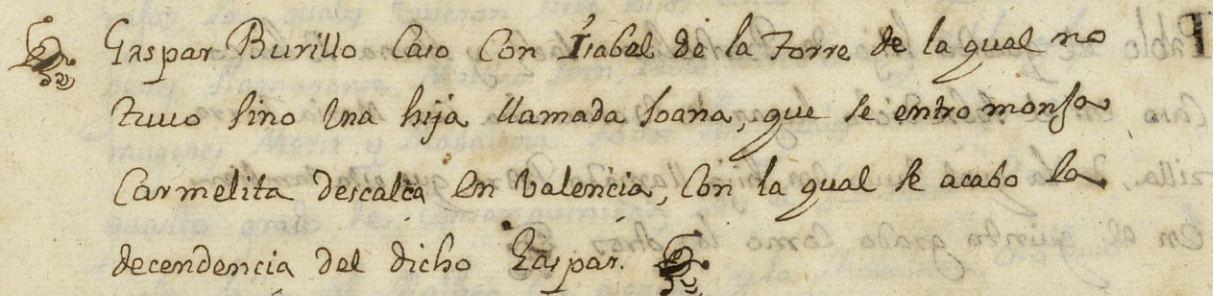 Gaspar Burillo Caso Con Isabel de la Torre de la qual no
tuuo sino Una hija llamada Joana, que se entro monja
Carmelita descalça En Valencia, Con la qual se acabo la
decendencia del dicho Gaspar.